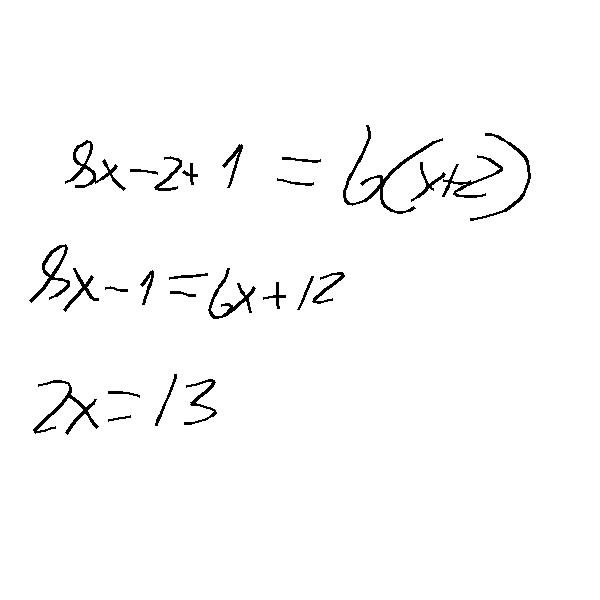 8x-2+1=6(x+2)
8x-1=6x+12
2x=13